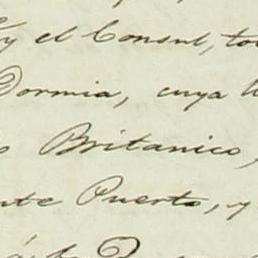 y el Consul, to
Dormia, cuya
o Britanico,
nte Puerto, y